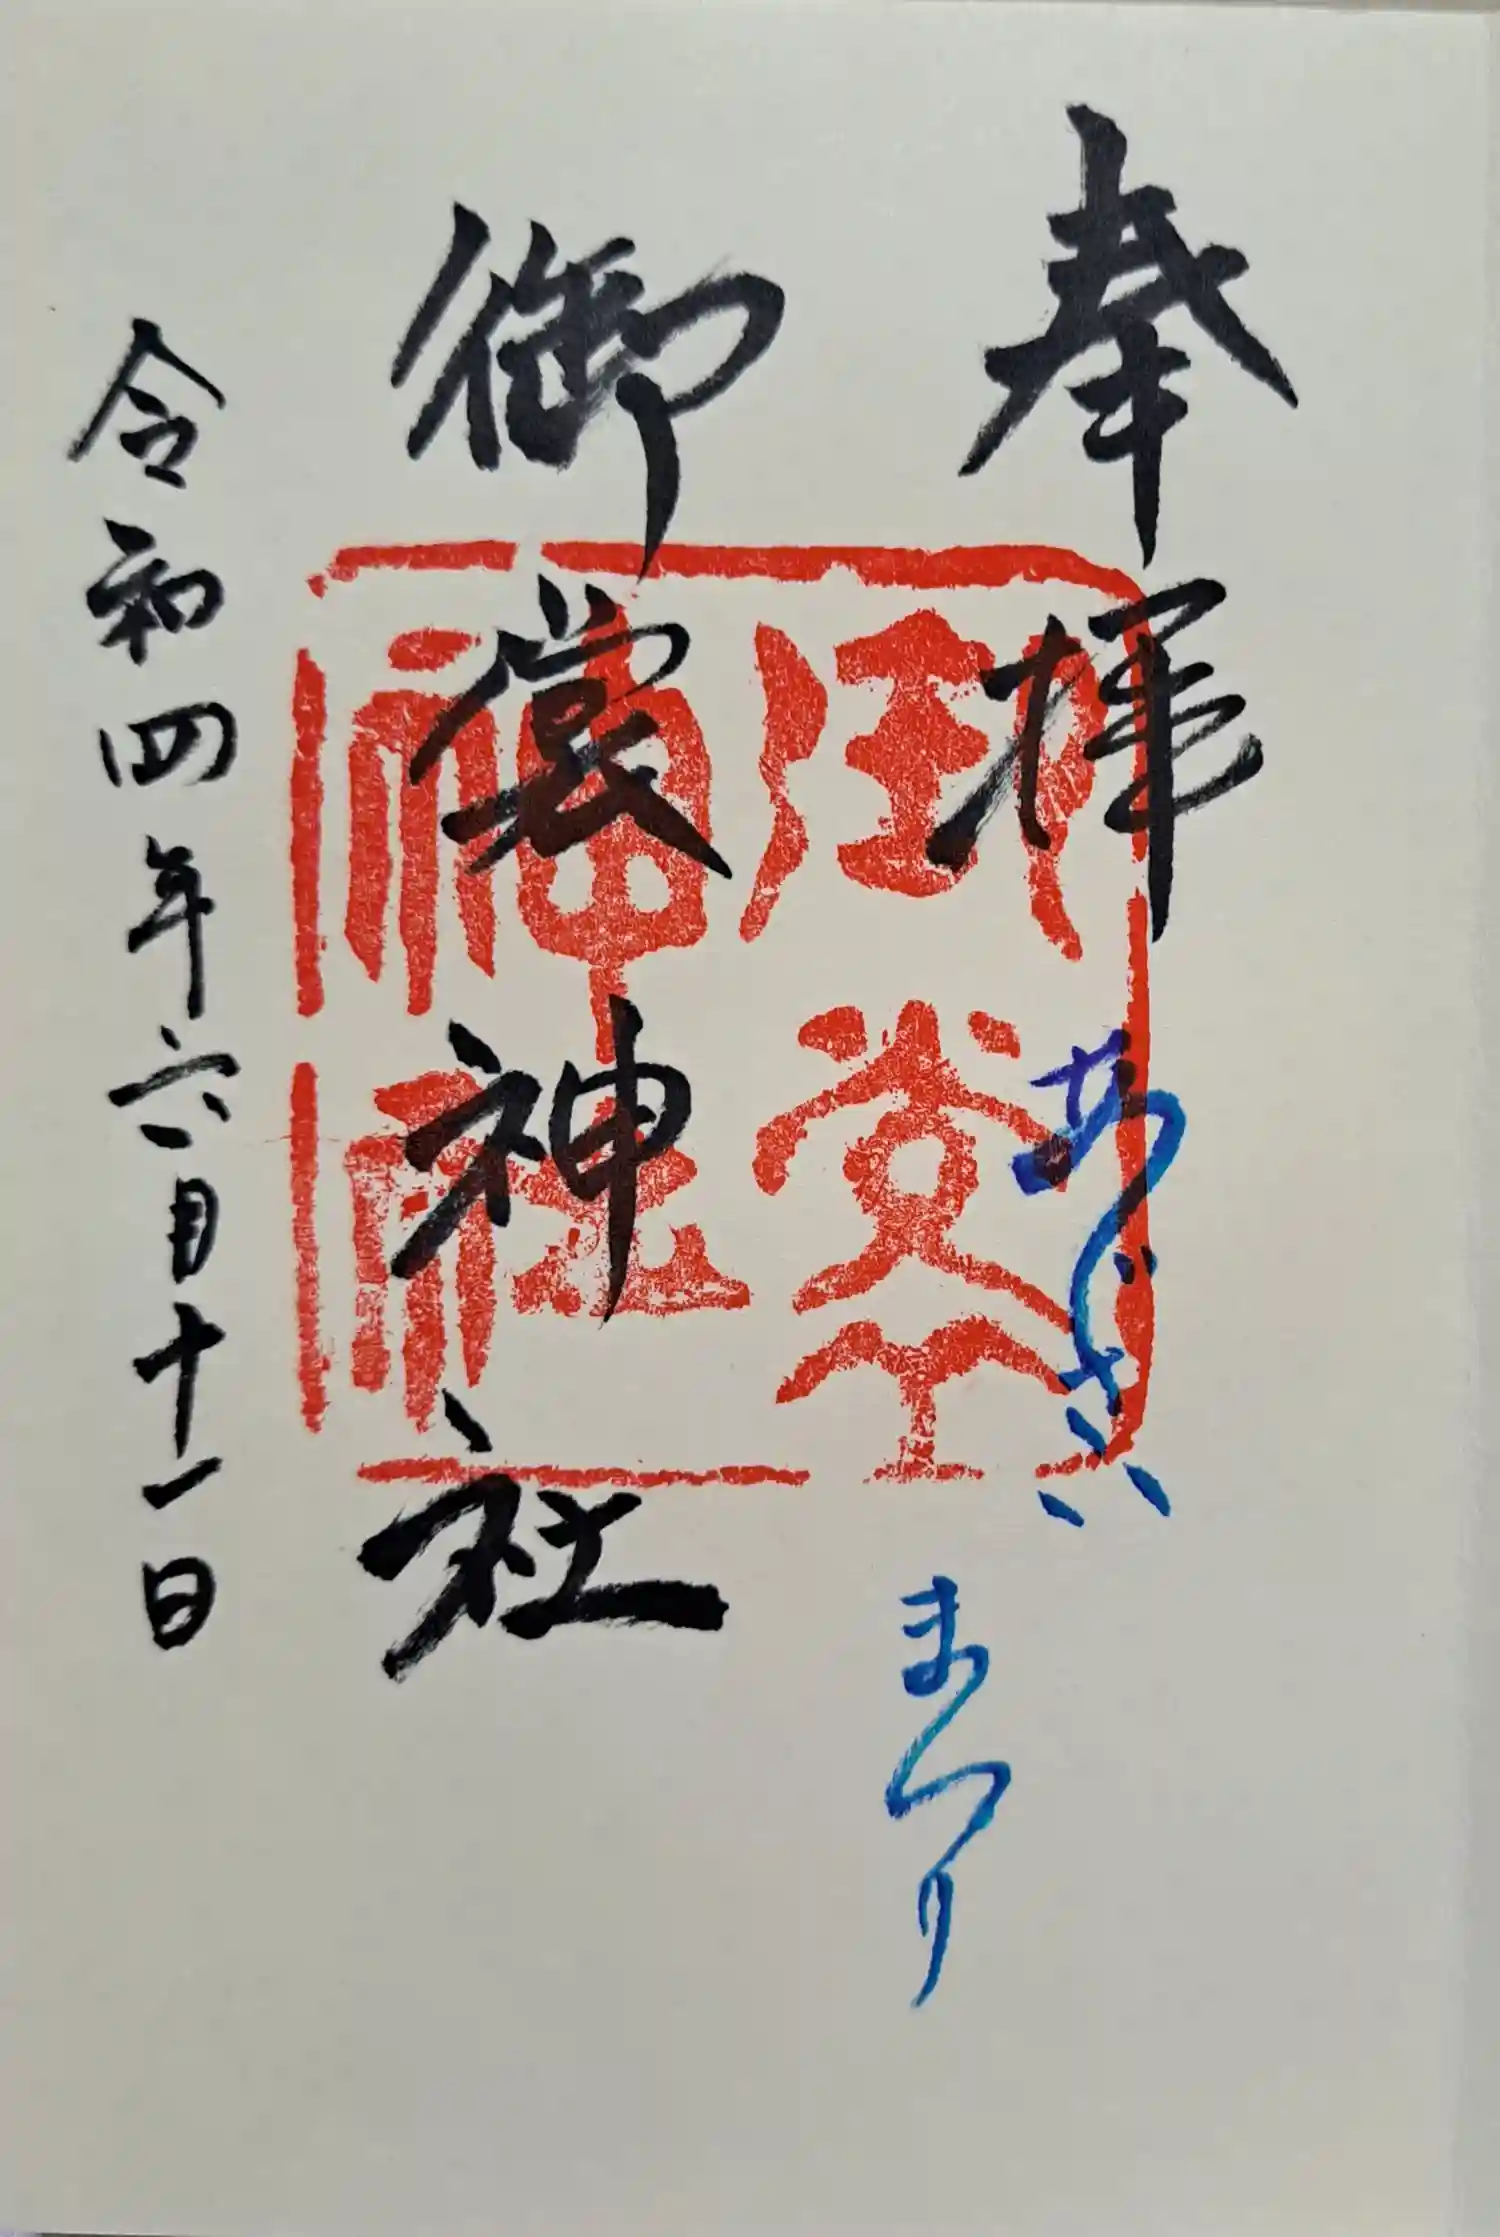 奉拝
あじさい
まつり
御裳神社
御裳
神社
令和四年六月十一日